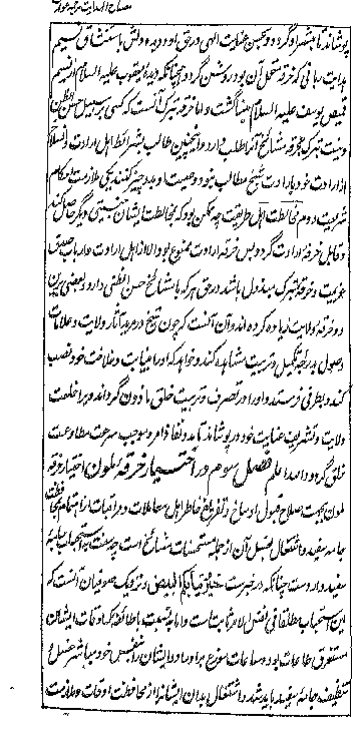 مصباح الهدایت
پوشاند تا مبشر او گردد و بحسن عنایت الهی در حق او و دیده دلش باستنشاق نسیم
هدایت ربانی که خرقه متحمل آن بود روشن گردد همچنانکه دیده یعقوب علیه السلام از نسیم
قمیص یوسف علیه السلام بینا گشت و اما خرقه تبرک آنست که کسی بر سبیل حسن الظن
و نیت تبرک بخرقه مشایخ آنرا طلب دارد و اینچنین طالب بشرائط اهل ارادت و انسلاخ
از ارادت خود بارادت شیخ مطالب نبود و وصیت او بدو چیز کنند یکی ملازمت احکام
شریعت دوم مخالطت اهل طریقت چه ممکن بود که بمخالطت ایشان جنسیتی دیگر حاصل کند
و قابل خرقه ارادت گردد پس خرقه ارادت ممنوع بود الا از اهل ارادت و ارباب صدق
عزیمت و خرقه تبرک مبذول باشد در حق هر که با مشایخ حسن الظنی دارد و بعضی برین
دو خرقه ولایت زیاده کرده اند و آن آنست که چون شیخ در مرید آثار ولایت و علامات
وصول بدرجه تکمیل و تربیت مشاهده کند و خواهد که او را بنیابت و خلافت خود نصب
کند و بطرفی فرستد و او را در تصرف و تربیت خلق ماذون گرداند ویرا خلعت
ولایت و تشریف عنایت خود در پوشاند تا مدد نفاذ امر و موجب سرعت مطاوعت
خلق گردد والله اعلم فصل سوم در اختیار خرقه ملون اختیار خرقه
ملون بجهت صلاح قبول اوساخ و تفریغ خاطر اهل معاملات و مراقبات از اهتمام بمحافظت
جامه سفید و اشتغال بغسل آن از جمله مستحسنات مشایخ است چه سنت باستحباب جامه
سفید وارد است چنانکه در خبرست خیر ثیابکم البیض و نزدیک صوفیان آنست که
این استحباب مطلقا فی نفس الامر ثابت است و اما بنسبت با طائفه که اوقات ایشان
مستغرق طاعات بود و ساعات موزع بر اوراد و ایشان را بنفس خود مباشر غسل و
تنظیف جامه سفید باید شد و اشتغال بدان ایشانرا از محافظت اوقات و ملازمت